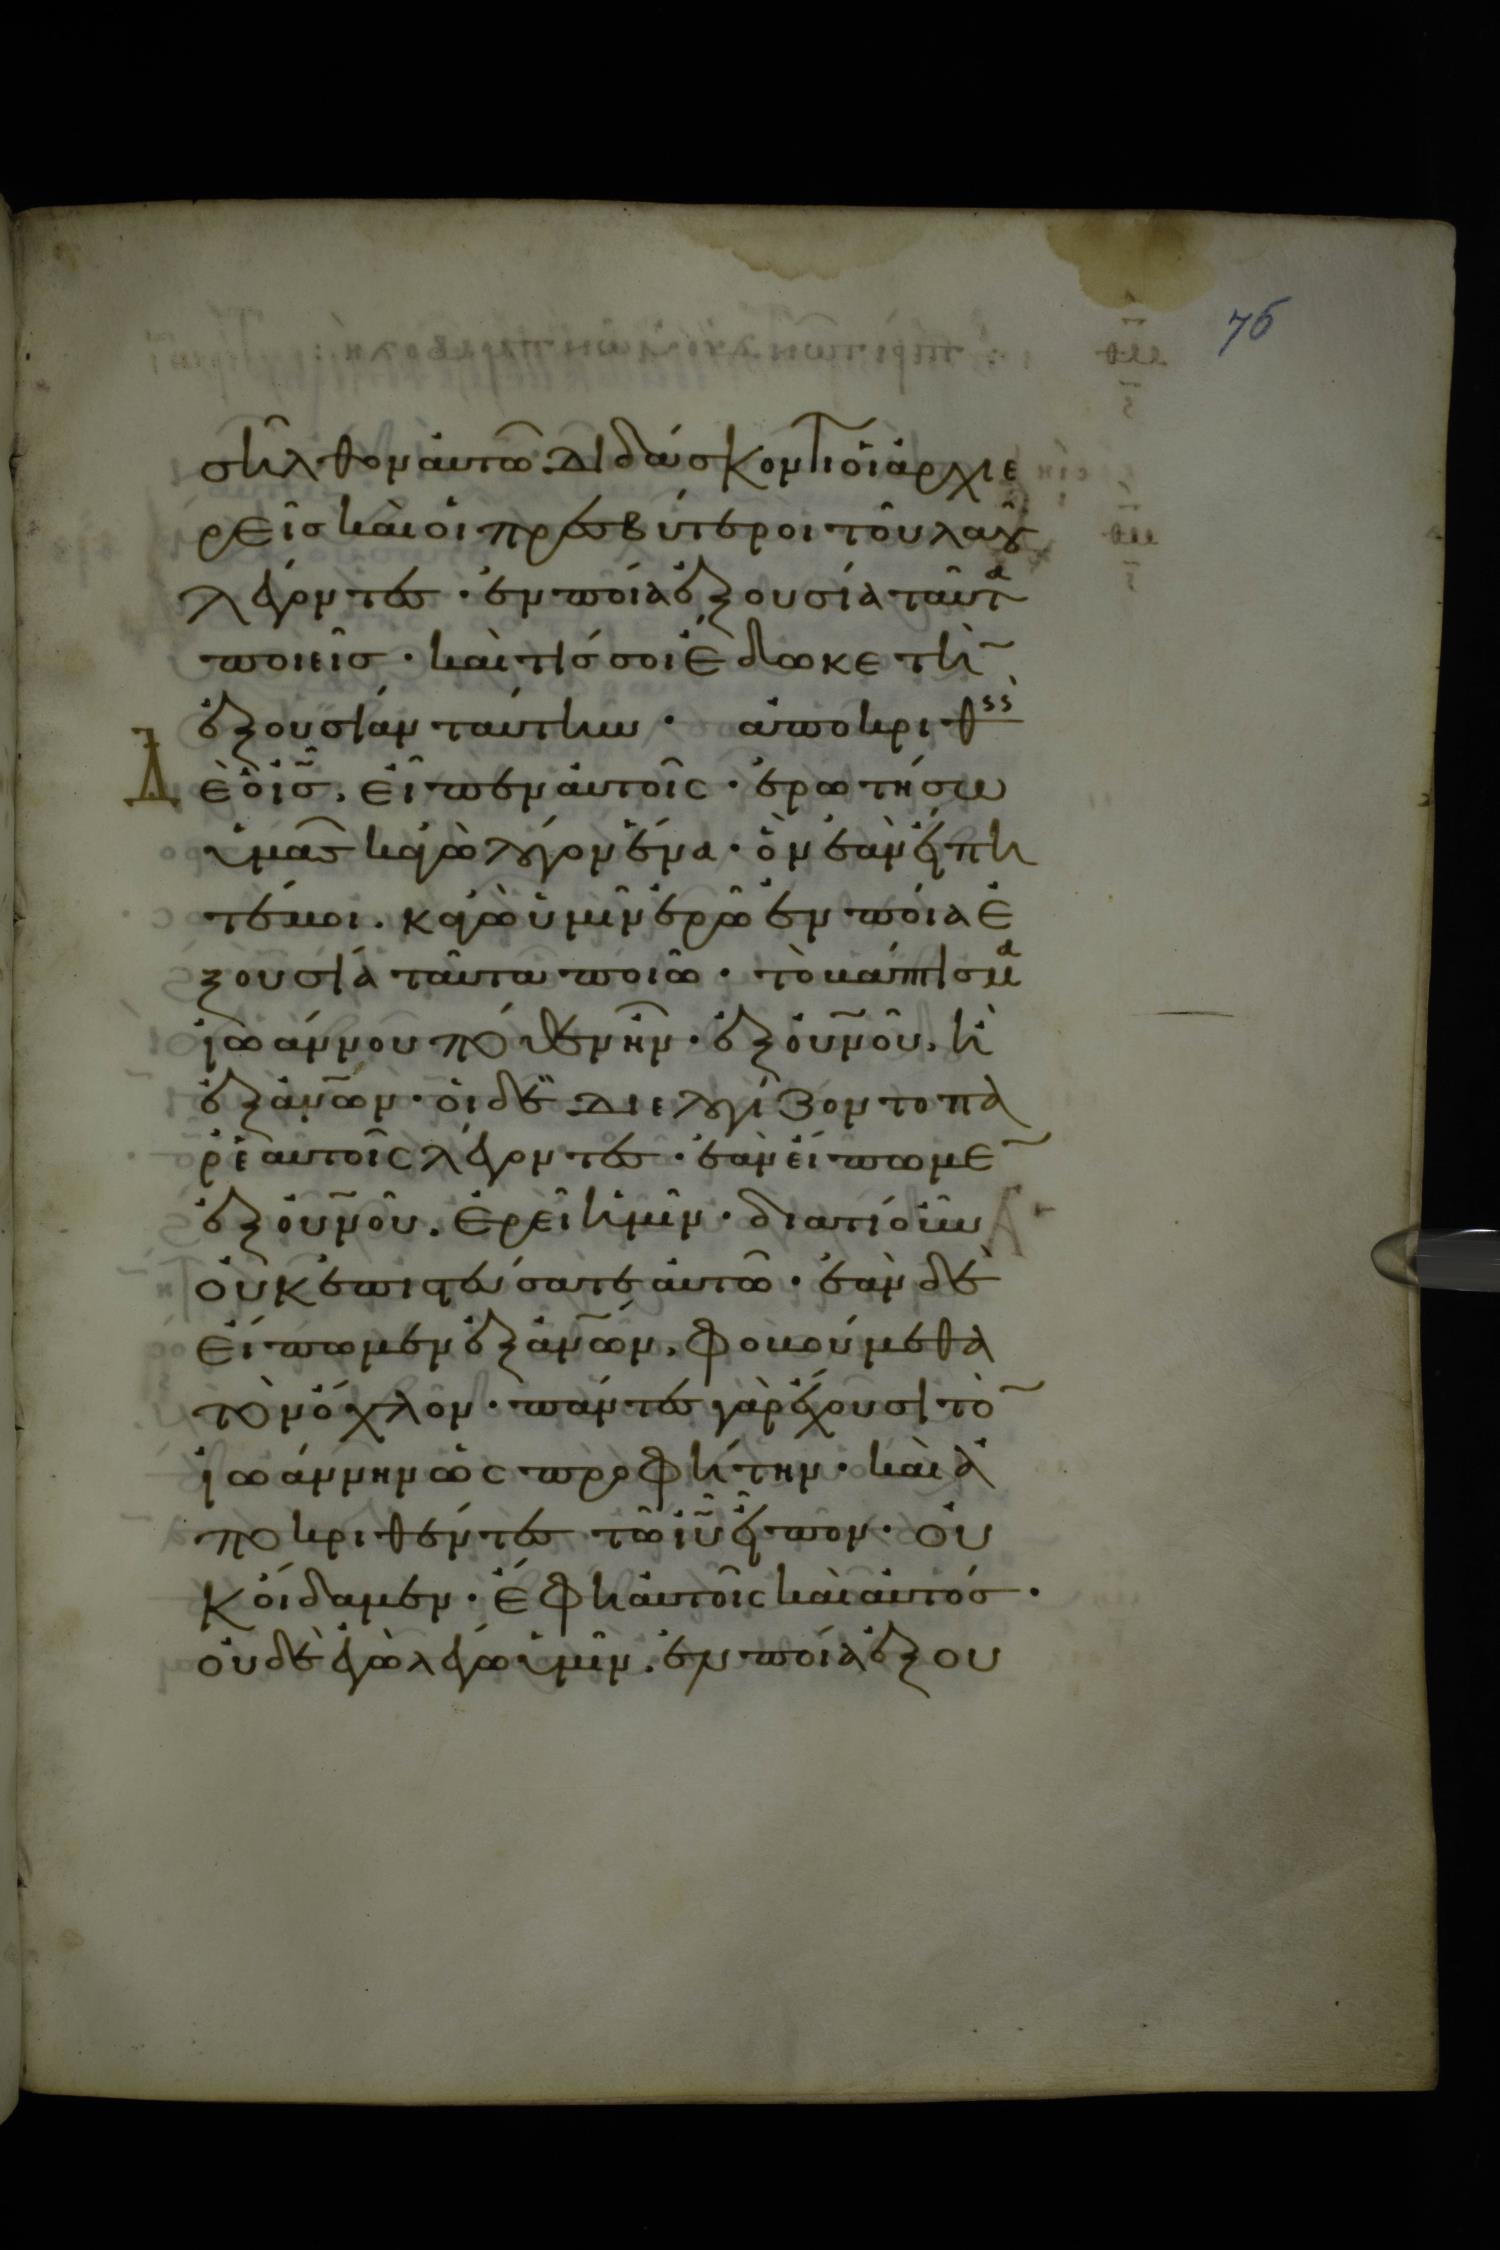 76
σῆλθον αὐτῶ διδάσκοντι οἱ ἀρχιε
ρεῖς καὶ οἱ πρεσβύτεροι τοῦ λαοῦ
λέγοντες · ἐν ποία ἐξουσία ταῦτα
ποιεῖς · καὶ τίς σοι ἔδωκε τὴ̄
ἐξουσίαν ταύτην · ἀποκριθεὶς
Δ
ὲ ὁ ἰ̄ς̄, εἶπεν αὐτοῖς · ἐρωτήσω
ὑμᾶς κἀγὼ λόγον ἕνα · ὃν ἐὰν εἴπη
τέ μοι. κἀγὼ ὑμῖν ἐρῶ ἐν ποία ἐ
ξουσία ταῦτα ποιῶ · τὸ βάπτισμα
ἰωάννου πόθεν ἦν · ἐξ οὐ̄νοῦ, ἢ
ἐξ ἀν̄ων · οἱ δὲ διελογίζοντο πα
ρ' ἑαυτοῖς λέγοντες · ἐὰν εἴπωμε̄
ἐξ οὐ̄νοῦ, ἐρεῖ ἡμῖν · διατί οὖν
οὐκ ἐπιστεύσατε αὐτῶ · ἐὰν δὲ
εἴπωμεν ἐξ ἀν̄ων, φοβούμεθα
τὸν ὄχλον · πάντες γὰρ ἔχουσι τὸ̄
ἰωάννην ὡς προφήτην · καὶ ἀ
ποκριθέντες τῶ ἰ̄ῡ εἶπον · οὐ
κ οἴδαμεν · ἔφη αὐτοῖς καὶ αὐτός ·
οὐδὲ ἐγὼ λέγω ὑμῖν, ἐν ποία ἐξου